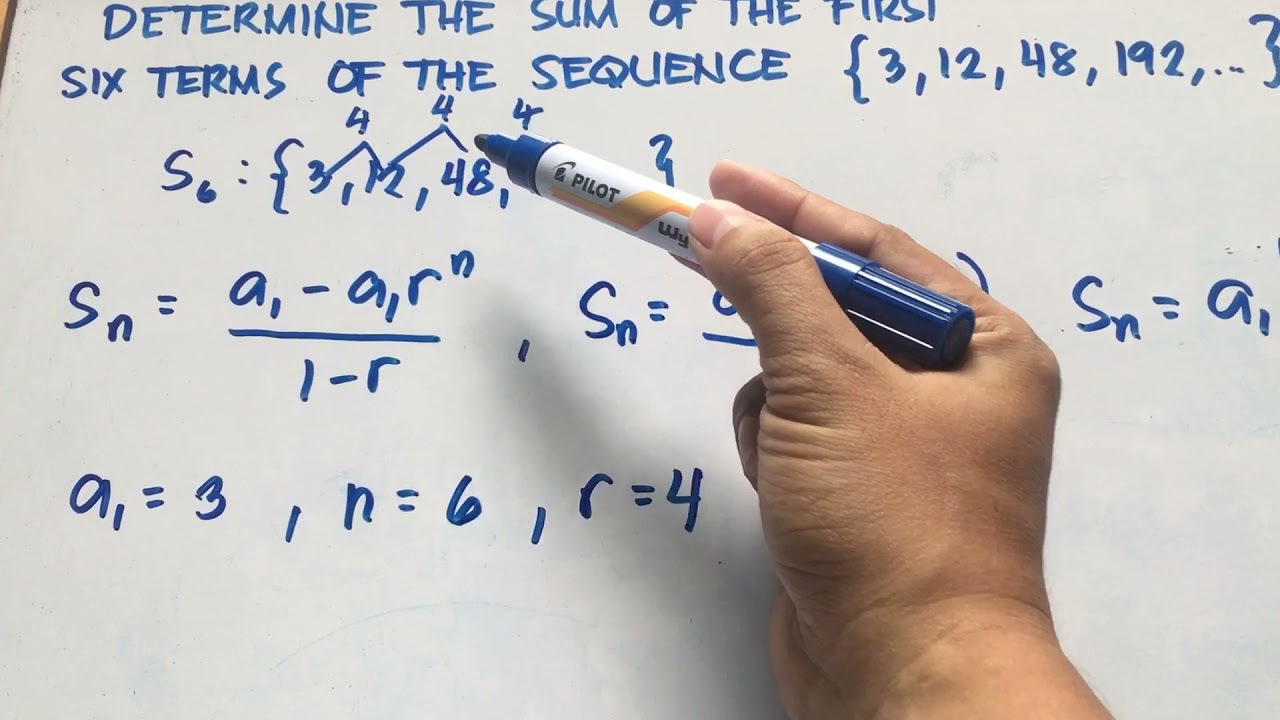 DETERMINE THE SUM OF THE FIRST
SIX TERMS OF THE SEQUENCE {3, 12, 48, 192, ... }
4 4 4
S₆ : { 3, 12, 48, }
Sₙ = (a₁ - a₁rⁿ)/(1 - r) , Sₙ = ) Sₙ = a₁
a₁ = 3 , n = 6 , r = 4
PILOT
Wy